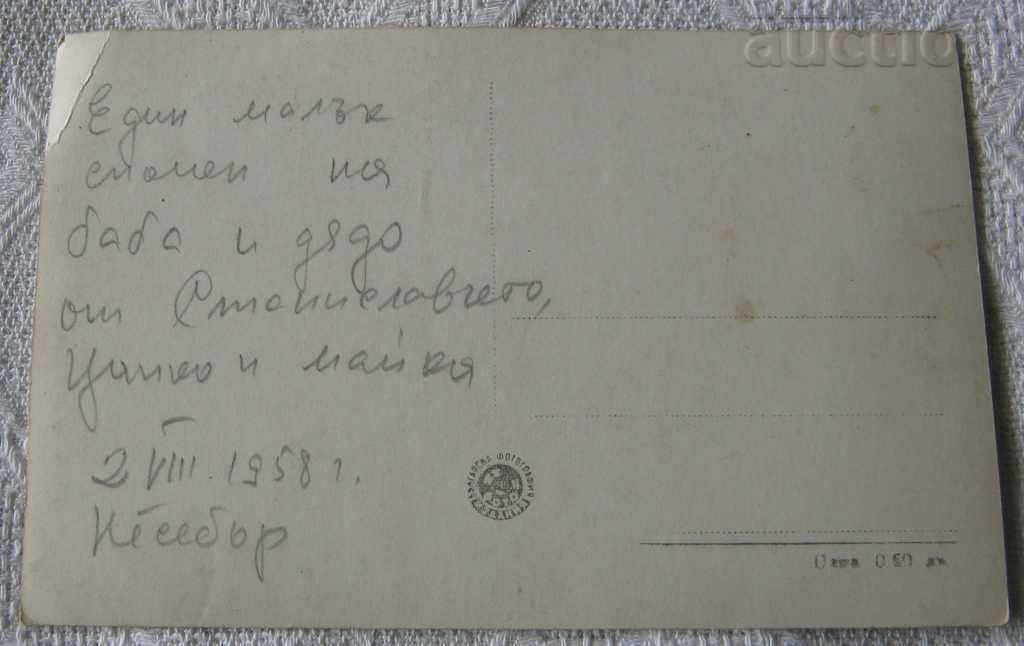 auctio
Един малък
спомен на
баба и дядо
от Станиславчето,
и майка
2 VIII. 1958 г.
Несебър
БЪЛГАРСКА ФОТОГРАФИЯ
Цена 0 50 лв.